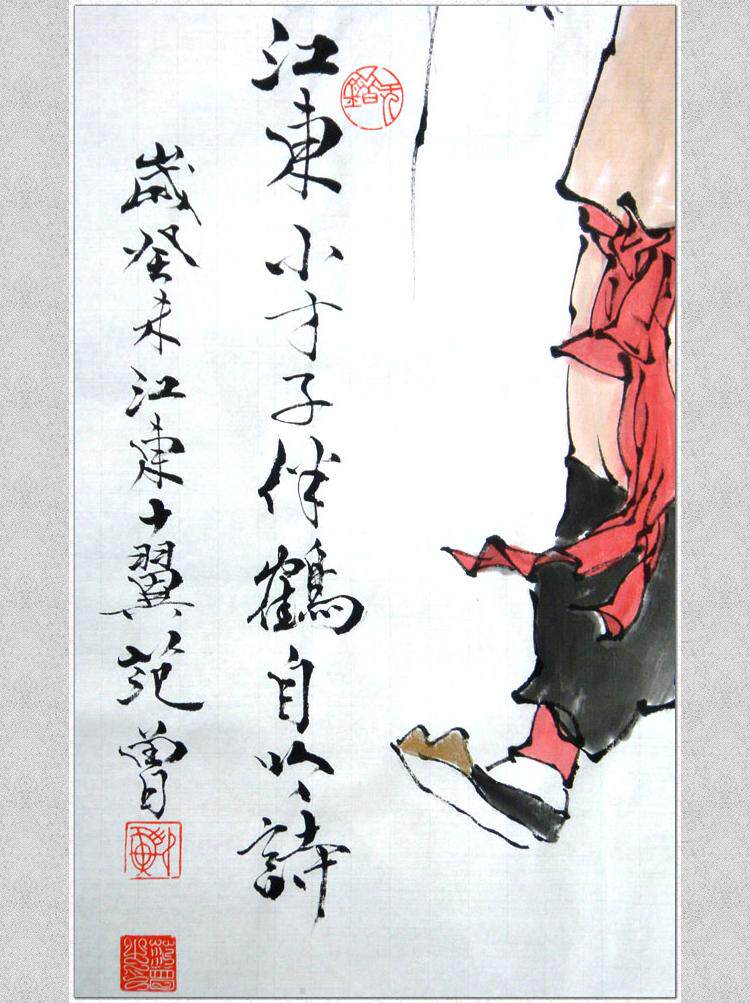 江東小才子伴鶴自吟詩
歲癸未江東十翼范曾